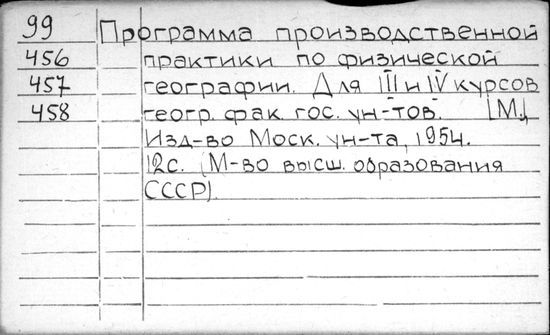 99 Программа производственной
456 практики по физической
457 географии. Для III и IV курсов
458 геогр. фак. гос. ун-тов. [М.],
Изд-во Моск. ун-та, 1954.
12с. (М-во высш. образования
СССР).